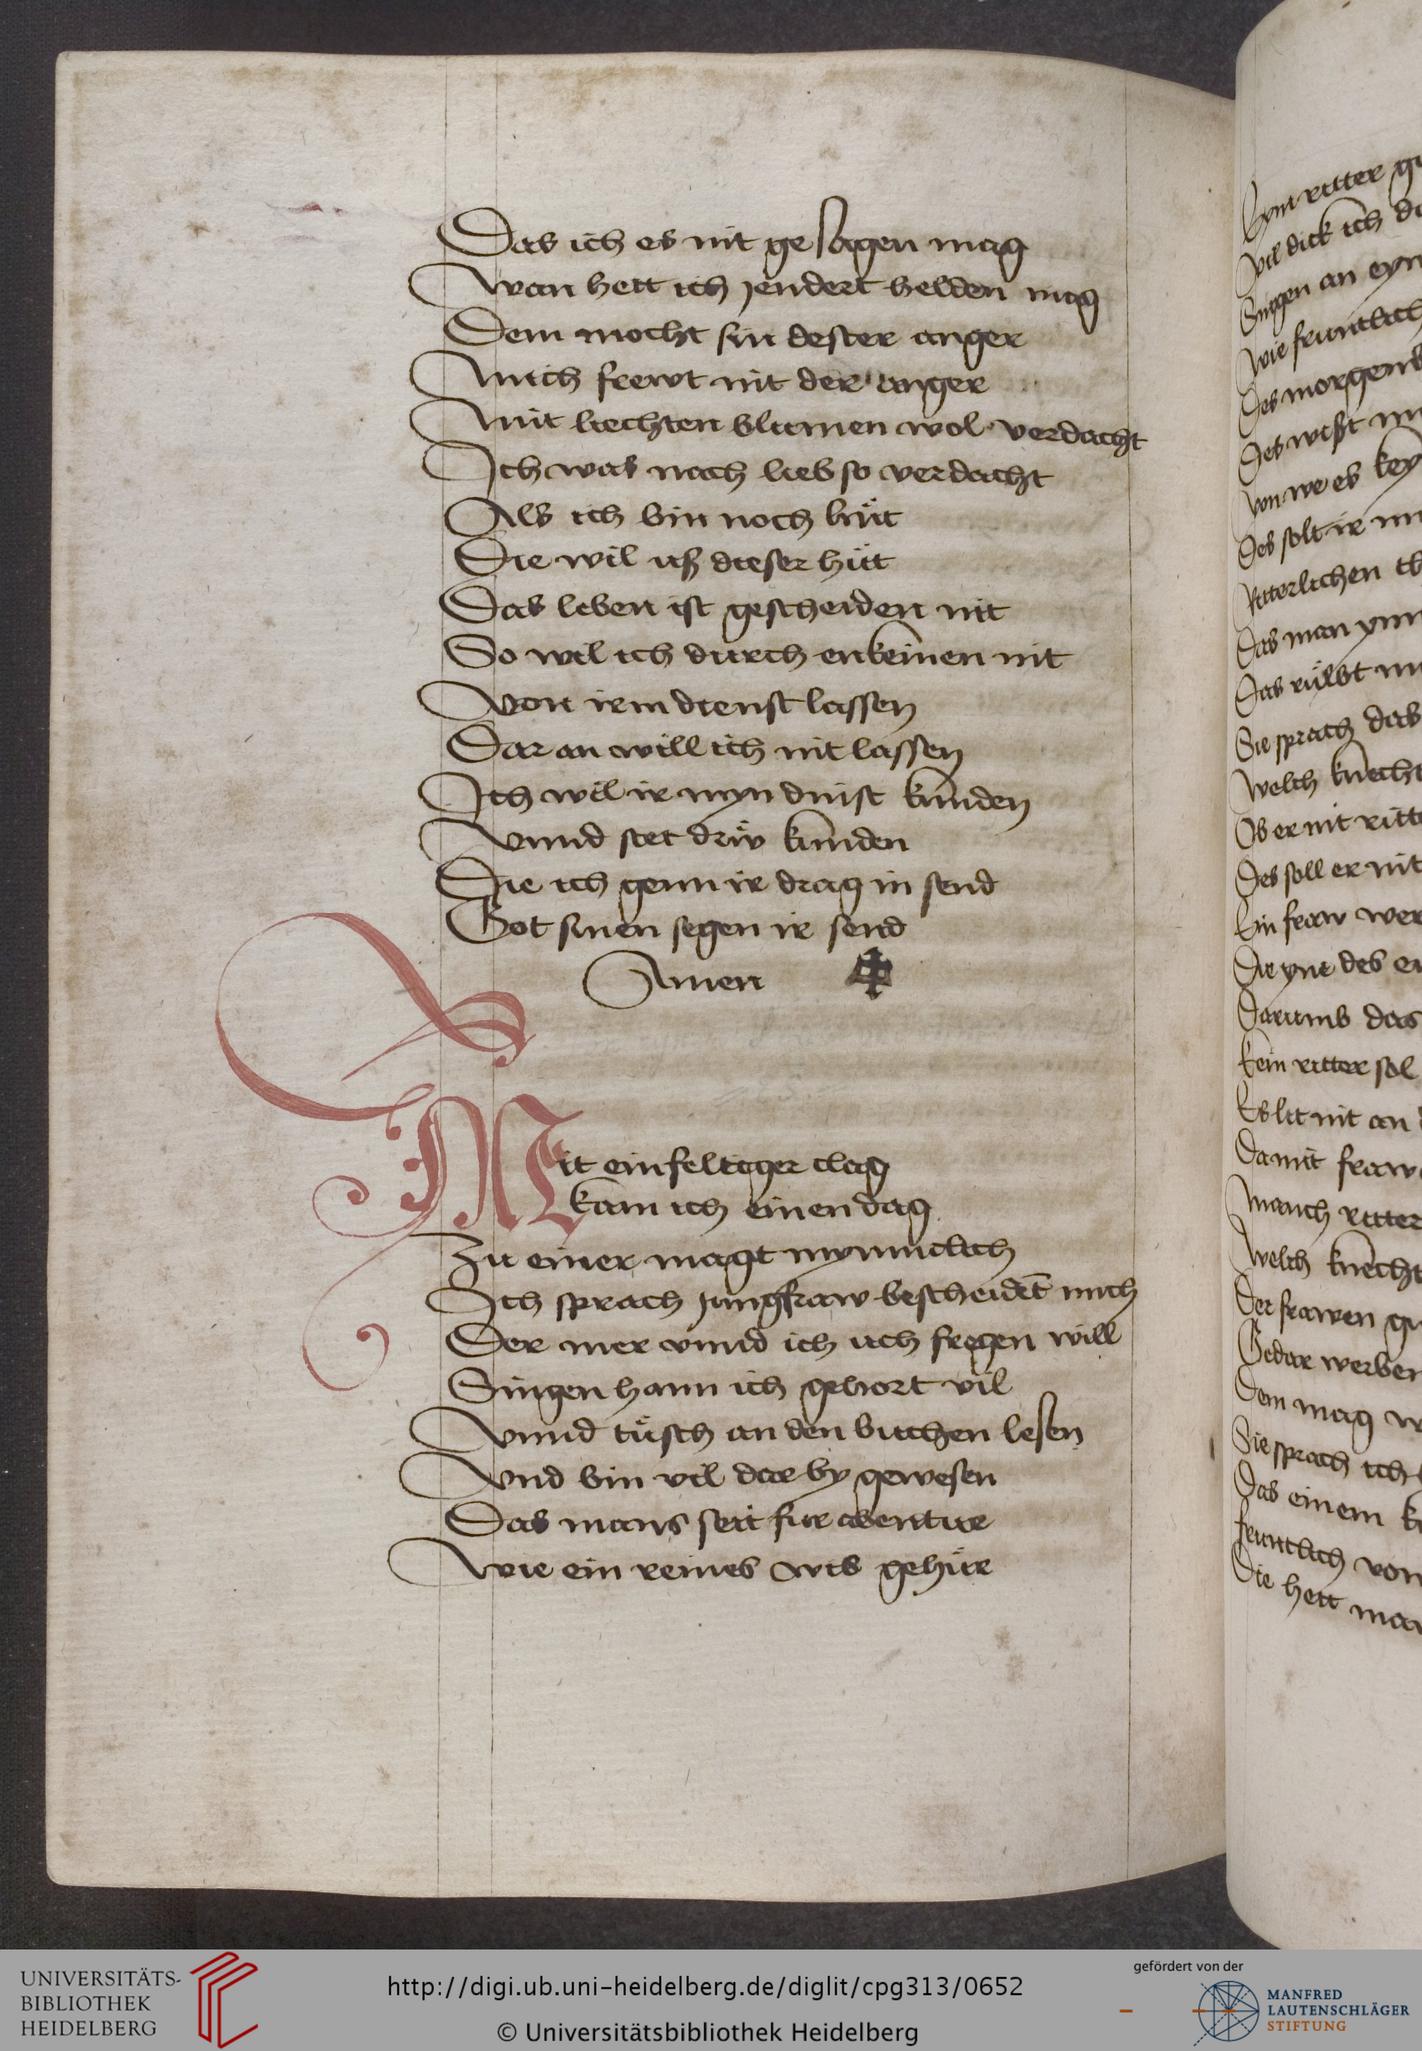 Das ich es nit gesagen mag
Wan hett ich jendert helden mag
Dem mocht sin dester anger
Mich frewt nit der anger
Mit liechten blumen wol verdacht
Ich was noch lieb so verdacht
Als ich bin noch hüt
Die wil uß dieser hüt
Das leben ist gescheiden nit
So wil ich durch enkeinen nit
Von irm dienst lassen
Dar an will ich nit lassen
Ich wil ir myn dinst kunden
Vnnd stet drüw kunden
Die ich genn ir drag in send
Got sinen segen ir send
Amen
Mit einfeltiger clag
kam ich einen dag
Zu einer magt mynnclich
Ich sprach jungfraw bescheidet mich
Der mer vnnd ich uch fregen will
Singen hann ich gehort vil
Vnnd tüsch an den buchen lesen
Vnd bin vil dar by gewesen
Das mans seit fur abentur
Wie ein reines wib gehür
vil dick ich
Singen an eyn
Wie fruntlich
Des morgens
Des solt ir
Ritterlichen
Das man ynn
Sie sprach das
Welch knecht
Ob er nit ritt
Des soll er nit
Ein fraw wer
Die yne des
Darumb das
kein ritter sol
Es lit nit an
Damit fraw
Manch ritter
Welch knecht
Der frawen
Gedar werben
Dem mag
Sie sprach ich
Das einem
fruntlich von
Die hett man
UNIVERSITÄTS-
BIBLIOTHEK
HEIDELBERG
http://digi.ub.uni-heidelberg.de/diglit/cpg313/0652
© Universitätsbibliothek Heidelberg
gefördert von der
MANFRED
LAUTENSCHLÄGER
STIFTUNG